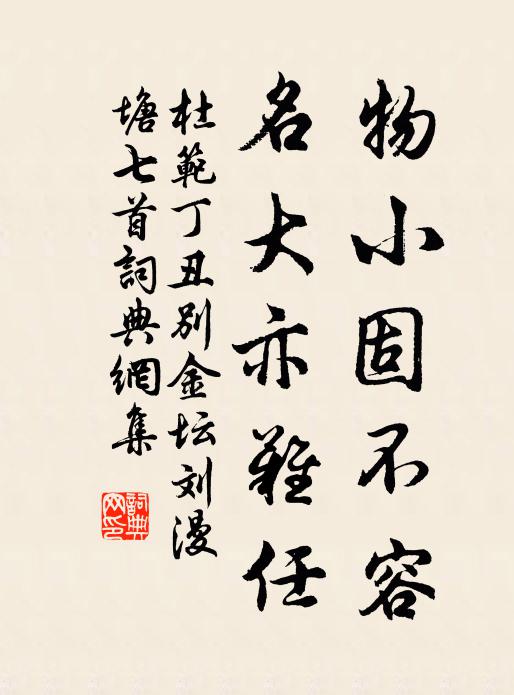 物小固不容
名大亦難任
杜範丁丑别金坛刘漫
塘七首詞典網集
詞典网印